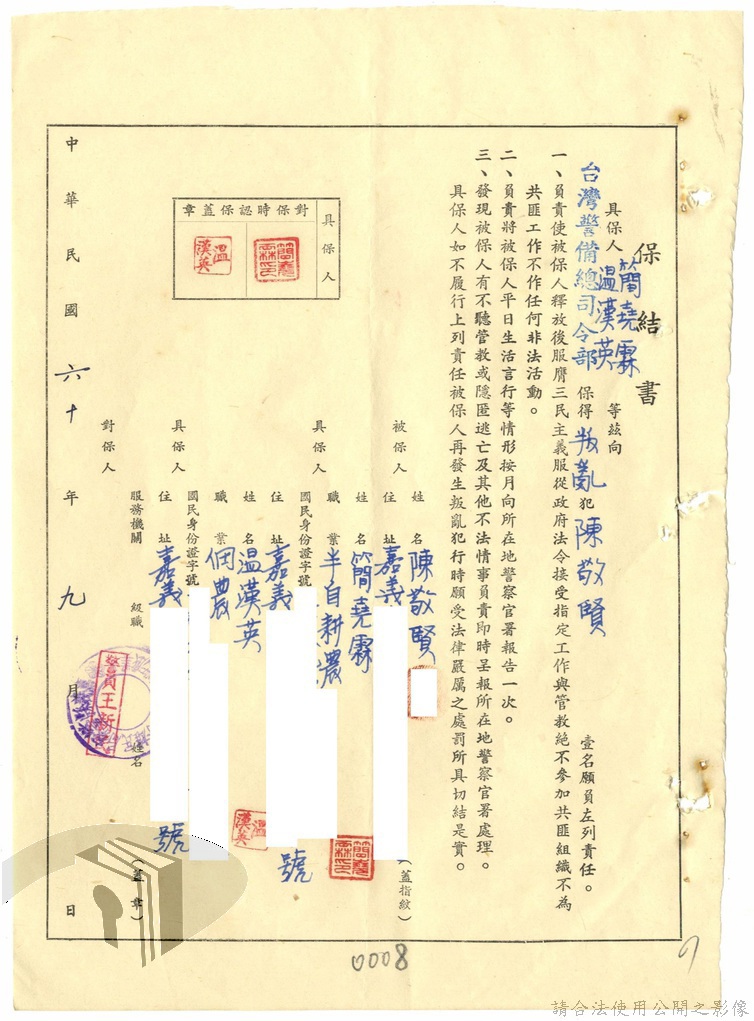 保結書
具保人 簡堯霖 溫漢英 等茲向
台灣警備總司令部 保得 叛亂 犯 陳敬賢 壹名願負左列責任。
一、負責使被保人釋放後服膺三民主義服從政府法令接受指定工作與管教絕不參加共匪組織不為
共匪工作不作任何非法活動。
二、負責將被保人平日生活言行等情形按月向所在地警察官署報告一次。
三、發現被保人有不聽管教或隱匿逃亡及其他不法情事負責即時呈報所在地警察官署處理。
具保人如不履行上列責任被保人再發生叛亂犯行時願受法律嚴厲之處罰所具切結是實。
具保人
對保時認保蓋章
簡堯霖印
溫漢英
被保人
姓名 陳敬賢 (蓋指紋)
住址 嘉義
具保人
姓名 簡堯霖
簡堯霖印
職業 半自耕農
國民身份證字號
住址 嘉義 號
具保人
姓名 溫漢英
溫漢英
職業 佃農
國民身份證字號
住址 嘉義 號
對保人
服務機關 級職 姓名 (蓋章)
警員王新
中華民國六十年九月 日
0008
9
請合法使用公開之影像